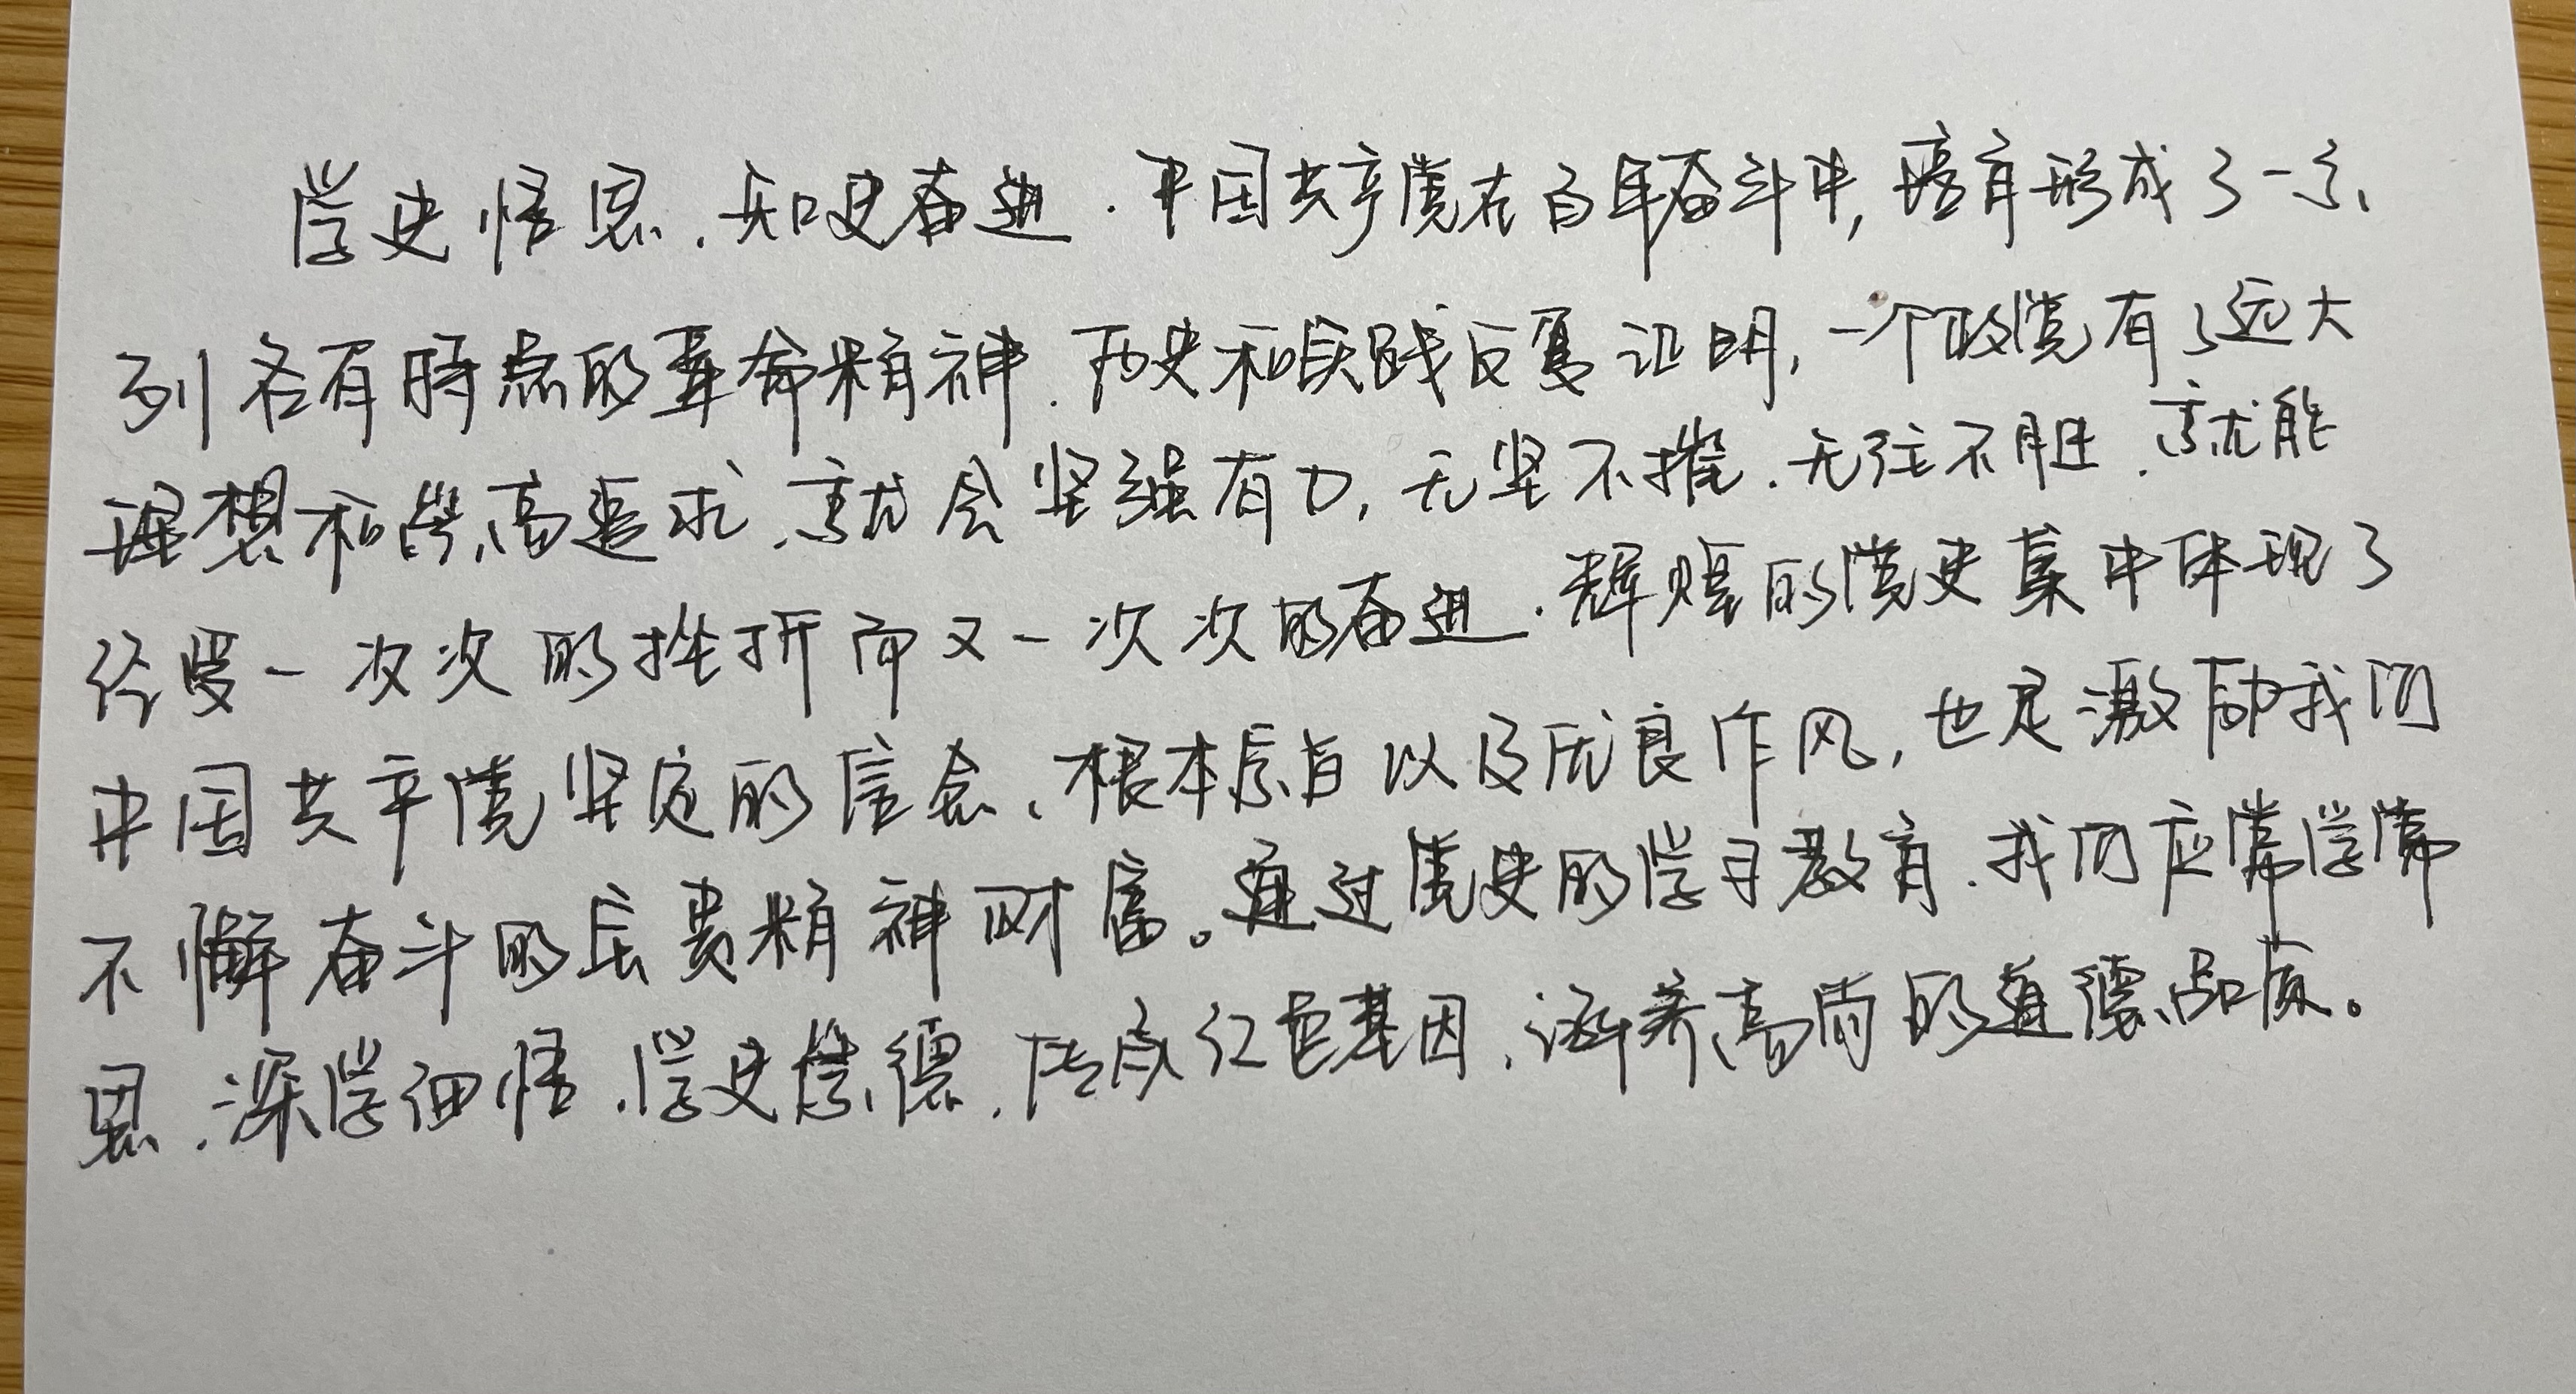 学史悟思,知史奋进.中国共产党在百年奋斗中,培育形成了一系
列各有特点的革命精神.历史和实践反复证明,一个政党有了远大
理想和崇高追求,就会坚强有力,无坚不摧.无往不胜,就能
经受一次次的挫折而又一次次的奋进.辉煌的党史集中体现了
中国共产党坚定的信念、根本宗旨以及优良作风,也是激励我们
不懈奋斗的宝贵精神财富。通过党史的学习教育.我们应常学常
思.深学细悟.学史崇德.传承红色基因.涵养高尚的道德品质。